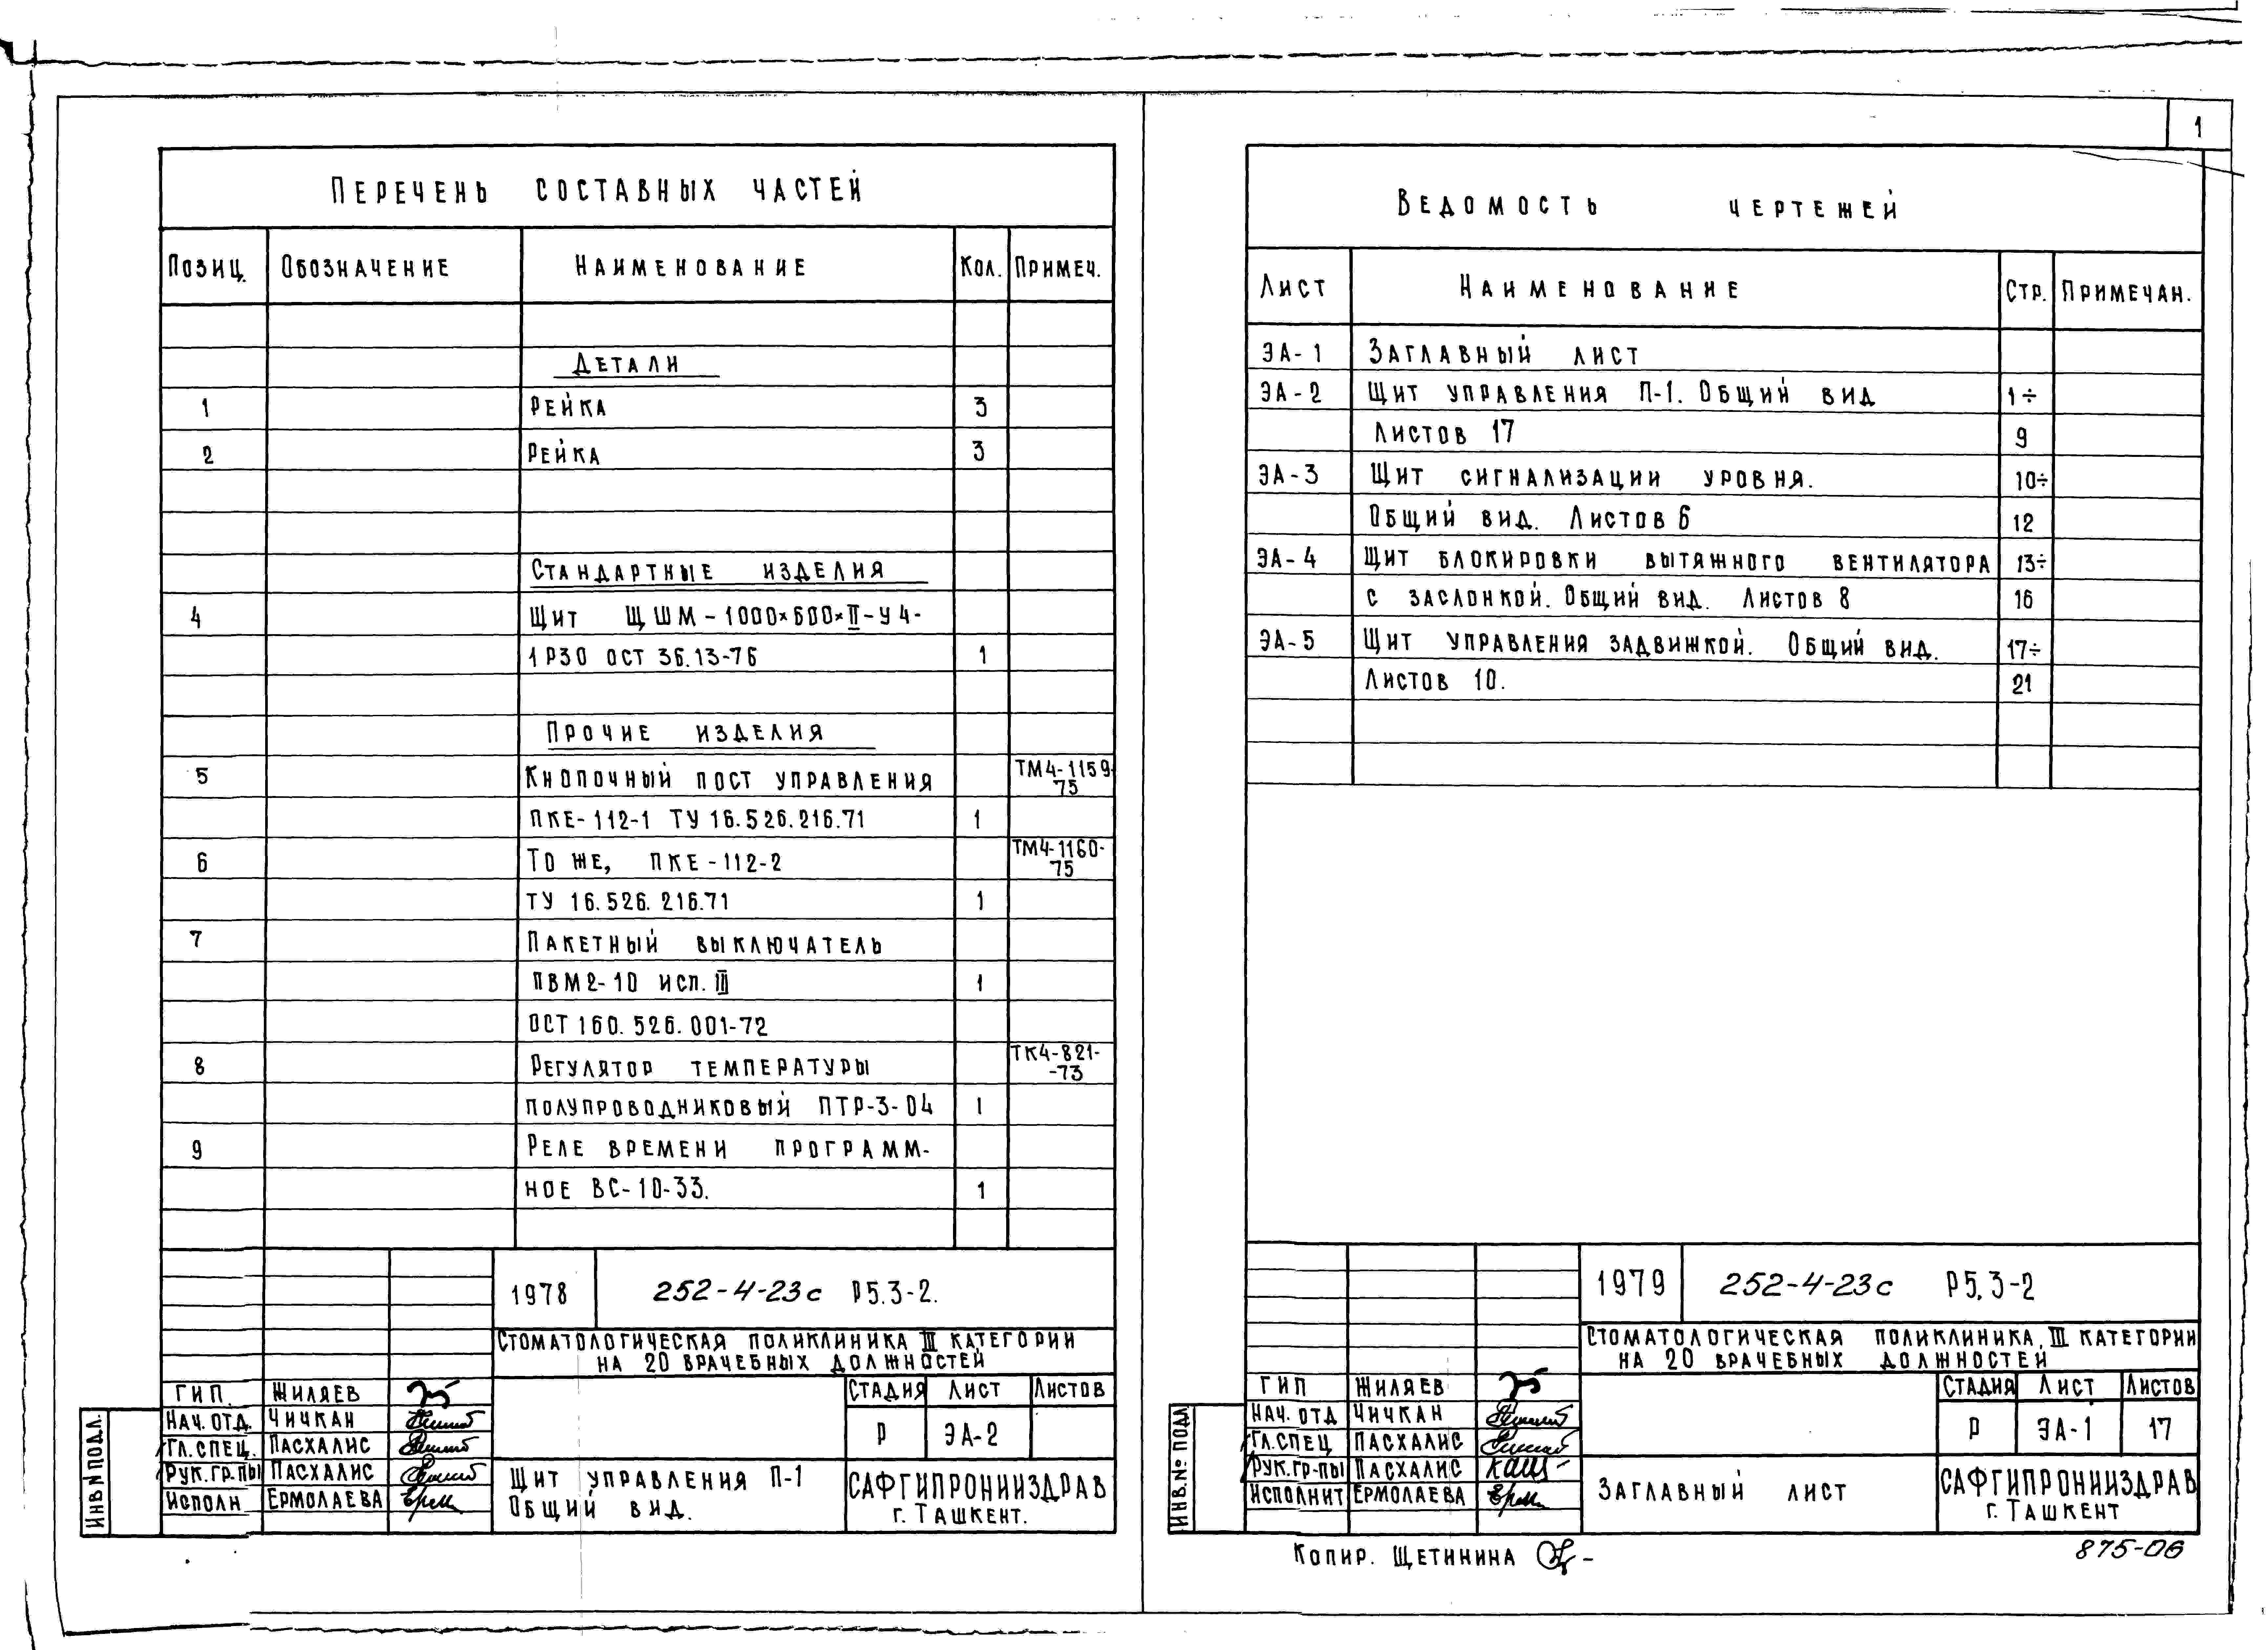 1
Перечень составных частей
Позиц. Обозначение Наименование Кол. Примеч.
Детали
1 Рейка 3
2 Рейка 3
Стандартные изделия
4 Щит ЩШМ-1000×600×II-У4-
1Р30 ОСТ 36.13-76 1
Прочие изделия
5 Кнопочный пост управления ТМ4-1159-
75
ПКЕ-112-1 ТУ 16.526.216.71 1
6 То же, ПКЕ-112-2 ТМ4-1160-
75
ТУ 16.526.216.71 1
7 Пакетный выключатель
ПВМ2-10 исп. III 1
ОСТ 160.526.001-72
8 Регулятор температуры ТК4-821-
-73
полупроводниковый ПТР-3-04 1
9 Реле времени программ-
ное ВС-10-33. 1
1978 252-4-23с Р5.3-2.
Стоматологическая поликлиника III категории
на 20 врачебных должностей
ГИП. Жиляев
Нач. отд. Чичкан
Гл. спец. Пасхалис
Рук. гр-пы Пасхалис
Исполн Ермолаева
Стадия Лист Листов
Р ЭА-2
Щит управления П-1
Общий вид.
САФГИПРОНИИЗДРАВ
г. Ташкент.
Инв N подл.
Ведомость чертежей
Лист Наименование Стр. Примечан.
ЭА-1 Заглавный лист
ЭА-2 Щит управления П-1. Общий вид 1÷
Листов 17 9
ЭА-3 Щит сигнализации уровня. 10÷
Общий вид. Листов 6 12
ЭА-4 Щит блокировки вытяжного вентилятора 13÷
с заслонкой. Общий вид. Листов 8 16
ЭА-5 Щит управления задвижкой. Общий вид. 17÷
Листов 10. 21
1979 252-4-23с Р5.3-2
Стоматологическая поликлиника III категории
на 20 врачебных должностей
ГИП Жиляев
Нач. отд Чичкан
Гл. спец Пасхалис
Рук. гр-пы Пасхалис
Исполнит Ермолаева
Стадия Лист Листов
Р ЭА-1 17
Заглавный лист
САФГИПРОНИИЗДРАВ
г. Ташкент
Инв. № подл
Копир. Щетинина
875-06